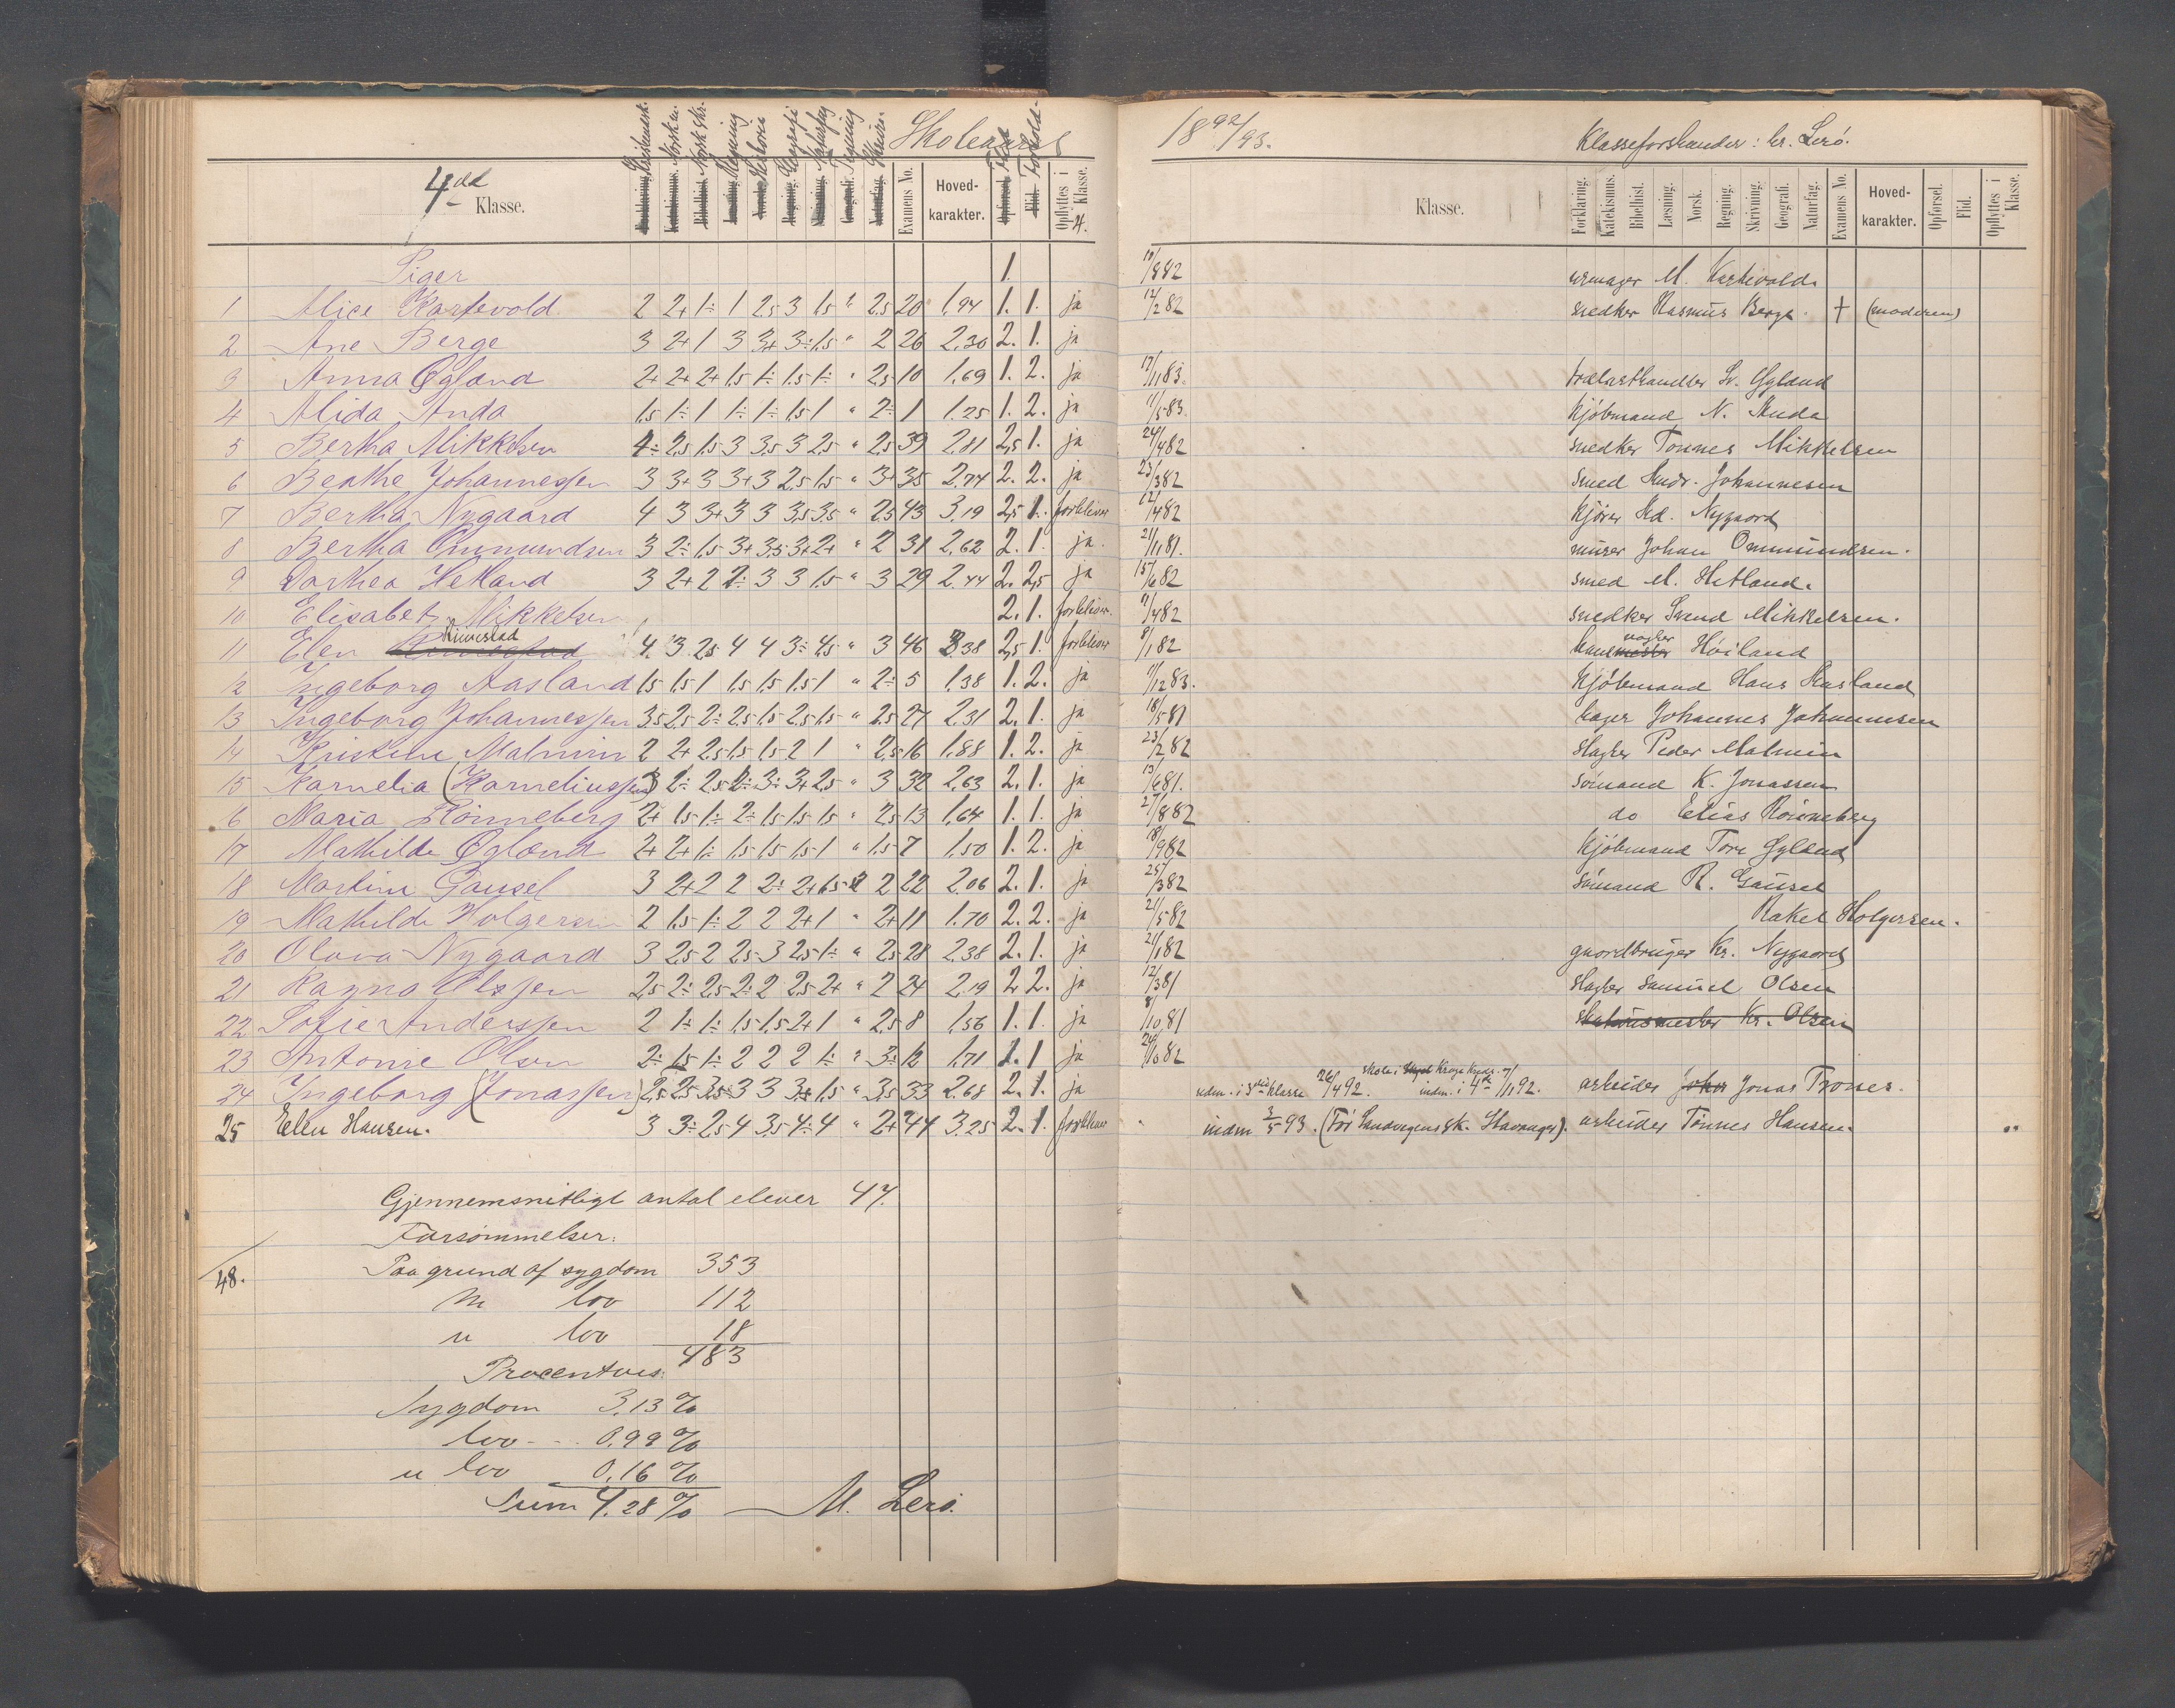 Skoleaaret 1892/93.
Klasseforstander: hr. Lerö.
4de Klasse.
Kristendomsk. Norsk m. Norsk skr. Regning Historie Geografi Naturfag Tegning Skrivn.
Examens No. Hoved-karakter. Flid Forhold. Opflyttes i 4. Klasse.
Klasse. Forklaring. Katekismus. Bibelhist. Læsning. Norsk. Regning. Skrivning. Geografi. Naturfag. Examens No. Hoved-karakter. Opførsel. Flid. Opflyttes i Klasse.
Piger
1 Alice Kartevold 2 2+ 1÷ 1 2,5 3 1,5 " 2,5 20 1,94 1. 1. ja
2 Ane Berge 3 2+ 1 3 3+ 3÷ 1,5 " 2 26 2,30 2. 1. ja
3 Anna Øgland 2+ 2+ 2+ 1,5 1÷ 1,5 1÷ " 2,5 10 1,69 1. 2. ja
4 Alida Anda 1,5 1÷ 1 1÷ 1÷ 1,5 1 " 2÷ 1 1.25 1. 2. ja
5 Bertha Mikkelsen 4÷ 2,5 1,5 3 3,5 3 2,5 " 2,5 39 2,81 2,5 1. ja
6 Beathe Johannessen 3 3+ 3 3+ 3 2,5 1,5 " 3+ 35 2.74 2. 2. ja
7 Bertha Nygaard 4 3 3+ 3 3 3,5 3,5 " 2,5 43 3,19 2,5 1. forbliver
8 Bertha Ommundsen 3 2÷ 1,5 3+ 3,5 3+ 2+ " 2 31 2,62 2. 1. ja
9 Dorthea Hetland 3 2+ 2 2÷ 3 3 1,5 " 3 29 2.44 2. 2,5 ja
10 Elisabet Mikkelsen 2. 1. forbliver.
11 Elen Rimestad 4. 3 2,5 4 4 3÷ 4,5 " 3 46 3,38 2,5 1. forbliver
12 Ingeborg Aasland 1,5 1,5 1 1,5 1,5 1,5 1 " 2÷ 5 1,38 1. 2. ja
13 Ingeborg Johannessen 3,5 2,5 2÷ 2,5 1,5 2,5 1,5 " 2,5 27 2,31 2. 1. ja
14 Kristine Malmin 2 2+ 2,5 1,5 1,5 2 1 " 2,5 16 1,88 1. 2. ja
15 Kornelia (Korneliussen) 3 2÷ 2,5 2÷ 3÷ 3+ 2,5 " 3 32 2,63 2. 1. ja
16 Maria Rönneberg 2+ 1,5 1÷ 2÷ 1,5 1,5 1,5 " 2,5 13 1,64 1. 1. ja
17 Mathilde Øgland 2+ 2+ 1÷ 1,5 1,5 1,5 1 " 1,5 7 1,50 1. 2. ja
18 Martine Gausel 3 2+ 2 2 2÷ 2+ 1,5 " 2 22 2,06 2. 1. ja
19 Mathilde Holgersen 2 1,5 1÷ 2 2 2+ 1 " 2+ 11 1.70 2. 2. ja
20 Olava Nygaard 3 2,5 2 2,5 3 2,5 1÷ " 2,5 28 2,38 2. 1. ja
21 Ragna Olssen 2,5 2÷ 2,5 2÷ 2 2,5 2+ " 2 24 2,19 2. 2. ja
22 Sofie Anderssen 2 1÷ 1÷ 1,5 1,5 2+ 1 " 2,5 8 1,56 1. 1. ja
23 Antonie Olsen 2÷ 1,5 1÷ 2 2 2 1÷ " 3÷ 12 1,71 1. 1 ja
24 Ingeborg (Jonassen) 2,5 2,5 3,5 3 3 3+ 1,5 " 3,5 33 2.68 2. 1. ja
25 Elen Hansen. 3 3÷ 2,5 4 3,5 4÷ 4 " 2+ 44 3.25 2. 1. forbliver
Gjennemsnitligt antal elever 47.
Forsømmelser.
48. Paa grund af sygdom 353
m lov 112
u lov 18
483
Procentvis.
Sygdom 3,13 %
lov 0,99 %
u lov 0,16 %
Sum 4.28 % M. Lerö.
10/8 82 urmager M. Kartevold.
12/2 82 snedker Rasmus Berge. † (moderen)
17/11 83. trælasthandler Sv. Øgland
11/5 83. kjöbmand N. Anda
24/4 82 snedker Tönnes Mikkelsen
23/3 82 smed Andr. Johannesen
12/4 82 kjörer Ad. Nygaard
21/11 81. murer Johan Ommundsen.
15/6 82 smed M. Hetland.
11/4 82 snedker Svend Mikkelsen.
8/1 82 Höiland
9/12 83. kjöbmand Hans Aasland
18/5 81 bager Johannes Johannesen
23/2 82 slagter Peder Malmin
13/6 81. sömand K. Jonassen
27/8 82 do Elias Rönneberg
18/9 82 kjöbmand Tore Øgland
25/3 82 sömand R. Gausel
21/5 82 Rakel Holgersen.
21/1 82 gaardbruger Kr. Nygaard
12/3 81 slagter Samuel Olsen
8/10 81
24/10 82
indm. i 3die klasse 26/4 92. indm. i 4de 7/11 92. arbeider Jonas Troner.
indm 3/5 93. (Før Sandvigens sk. Stavanger). arbeider Tönnes Hansen.